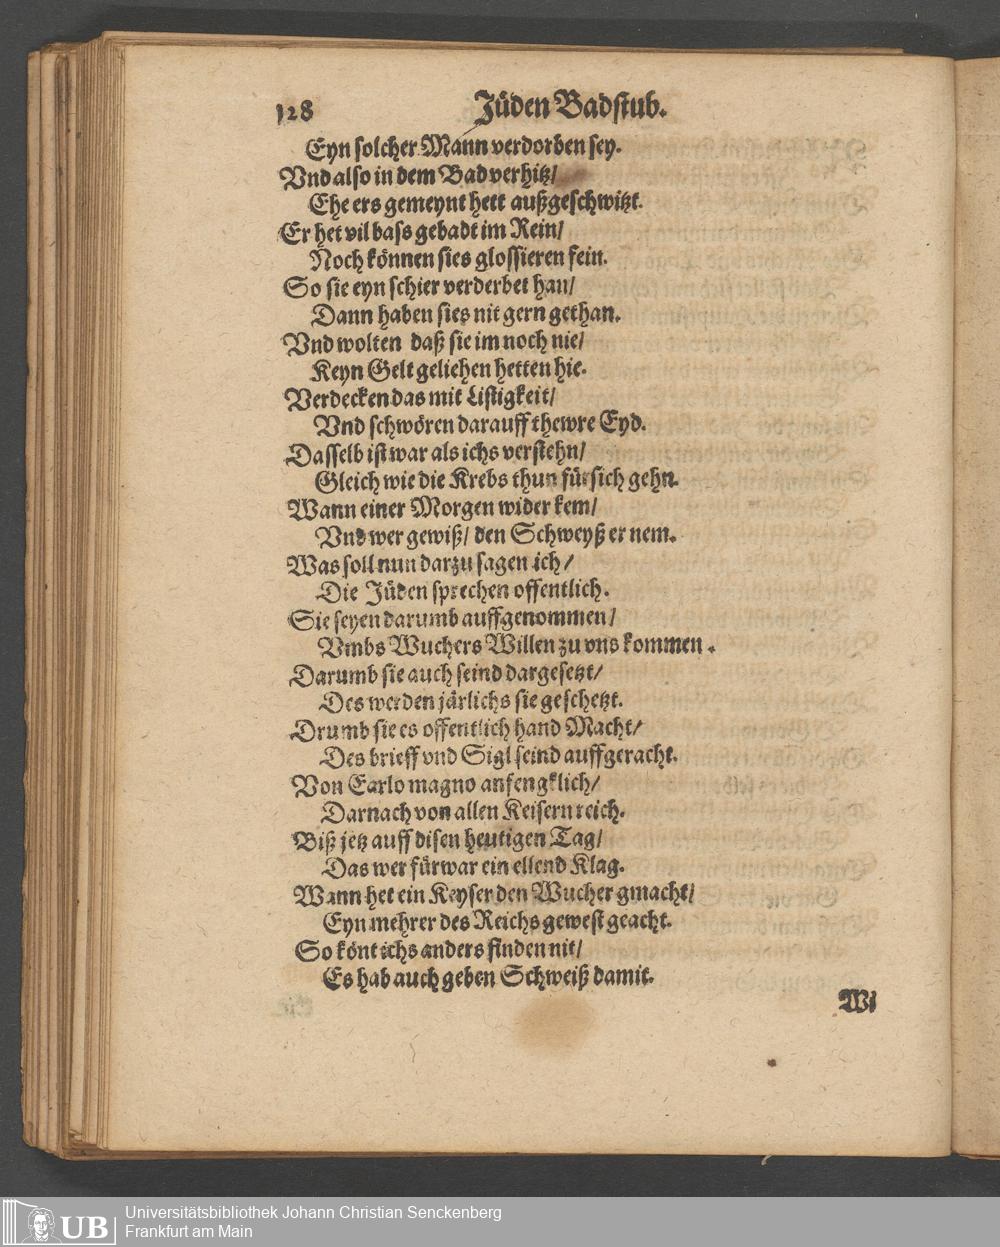 128 Jüden Badstub.
Eyn solcher Mann verdorben sey.
Vnd also in dem Bad verhitz/
Ehe ers gemeynt hett außgeschwitzt.
Er het vil bass gebadt im Rein/
Noch können sies glossieren fein.
So sie eyn schier verderbet han/
Dann haben sies nit gern gethan.
Vnd wolten daß sie im noch nie/
Keyn Gelt geliehen hetten hie.
Verdecken das mit Listigkeit/
Vnd schwören darauff thewre Eyd.
Dasselb ist war als ichs verstehn/
Gleich wie die Krebs thun für sich gehn.
Wann einer Morgen wider kem/
Vnd wer gewiß/ den Schweyß er nem.
Was soll nun darzu sagen ich/
Die Jüden sprechen offentlich.
Sie seyen darumb auffgenommen/
Vmbs Wuchers Willen zu vns kommen.
Darumb sie auch seind dargesetzt/
Des werden järlichs sie geschetzt.
Drumb sie es offentlich hand Macht/
Des brieff vnd Sigl seind auffgeracht.
Von Carlo magno anfengklich/
Darnach von allen Keisern reich.
Biß jetz auff disen heutigen Tag/
Das wer fürwar ein ellend Klag.
Wann het ein Keyser den Wucher gmacht/
Eyn mehrer des Reichs gewest geacht.
So könt ichs anders finden nit/
Es hab auch geben Schweiß damit.
Wi
UB Universitätsbibliothek Johann Christian Senckenberg
Frankfurt am Main